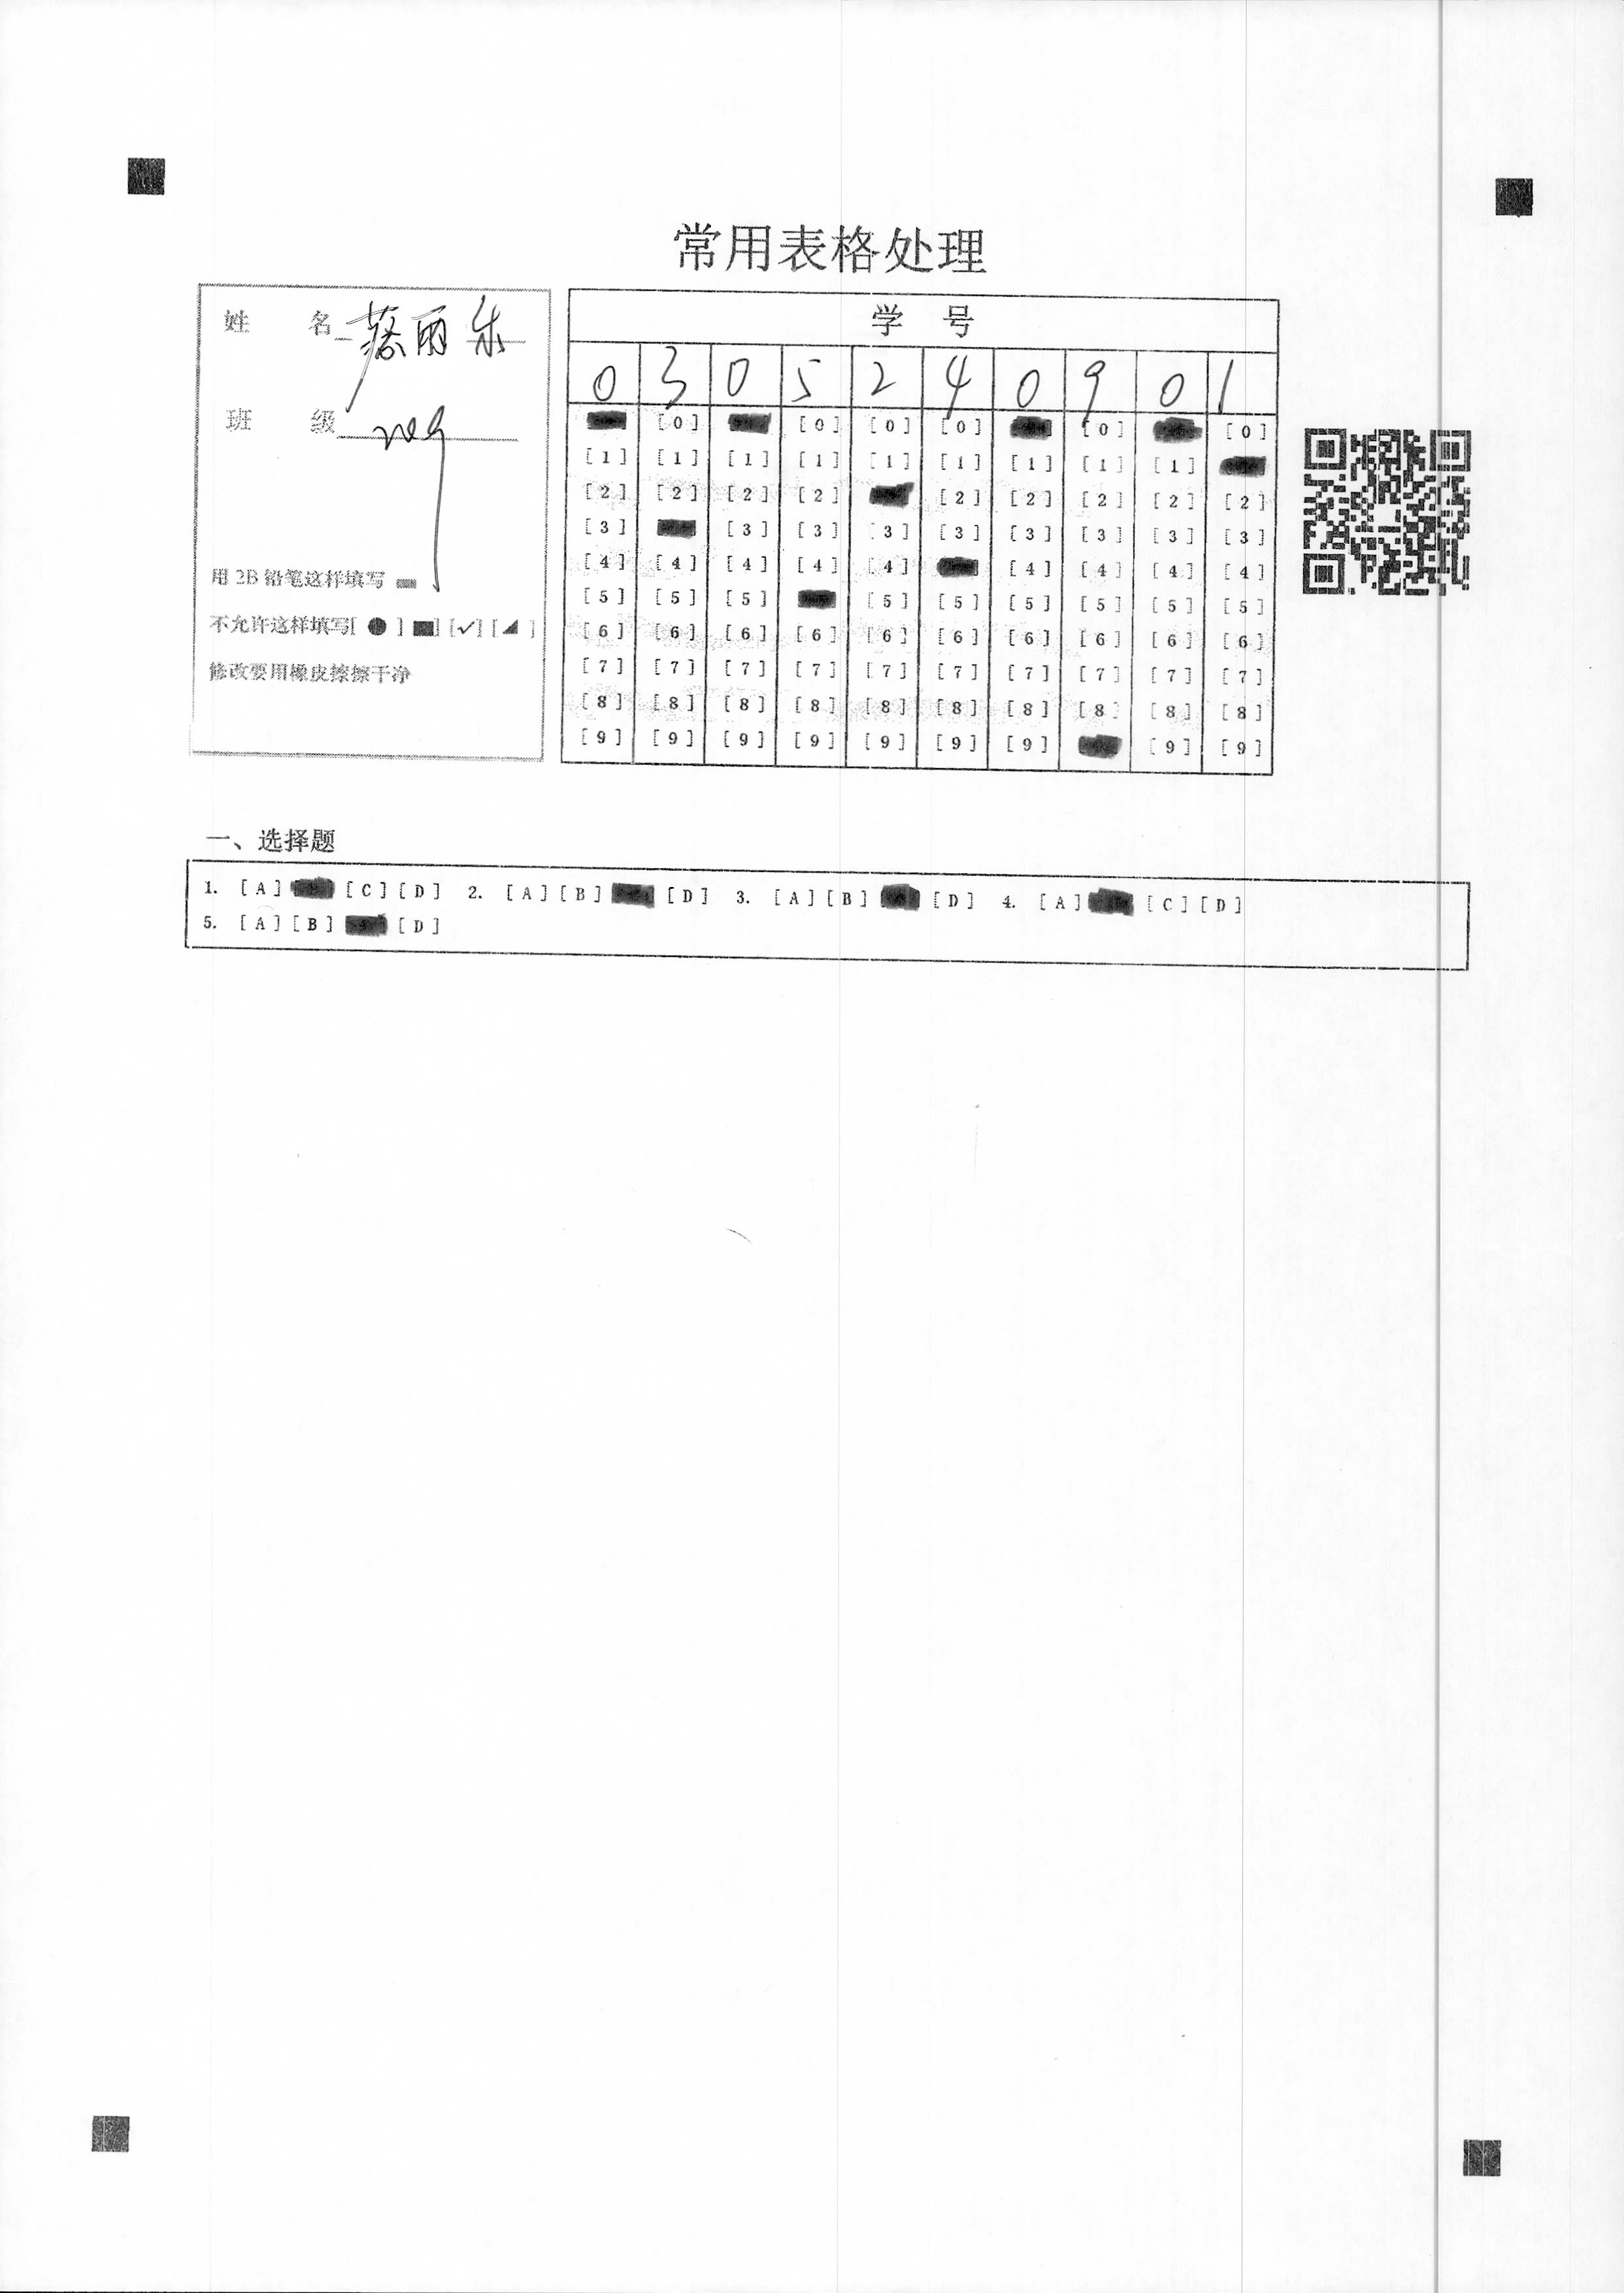 常用表格处理
姓 名
班 级
用 2B 铅笔这样填写
不允许这样填写[ ● ] [■] [✓] [◢ ]
修改要用橡皮擦擦干净
学 号
0 3 0 5 2 4 0 9 0 1
[0] [0] [0] [0] [0] [0]
[1] [1] [1] [1] [1] [1] [1] [1] [1]
[2] [2] [2] [2] [2] [2] [2] [2] [2]
[3] [3] [3] [3] [3] [3] [3] [3] [3]
[4] [4] [4] [4] [4] [4] [4] [4] [4]
[5] [5] [5] [5] [5] [5] [5] [5] [5]
[6] [6] [6] [6] [6] [6] [6] [6] [6] [6]
[7] [7] [7] [7] [7] [7] [7] [7] [7] [7]
[8] [8] [8] [8] [8] [8] [8] [8] [8] [8]
[9] [9] [9] [9] [9] [9] [9] [9] [9]
一、选择题
1. [A] [C] [D] 2. [A] [B] [D] 3. [A] [B] [D] 4. [A] [C] [D]
5. [A] [B] [D]